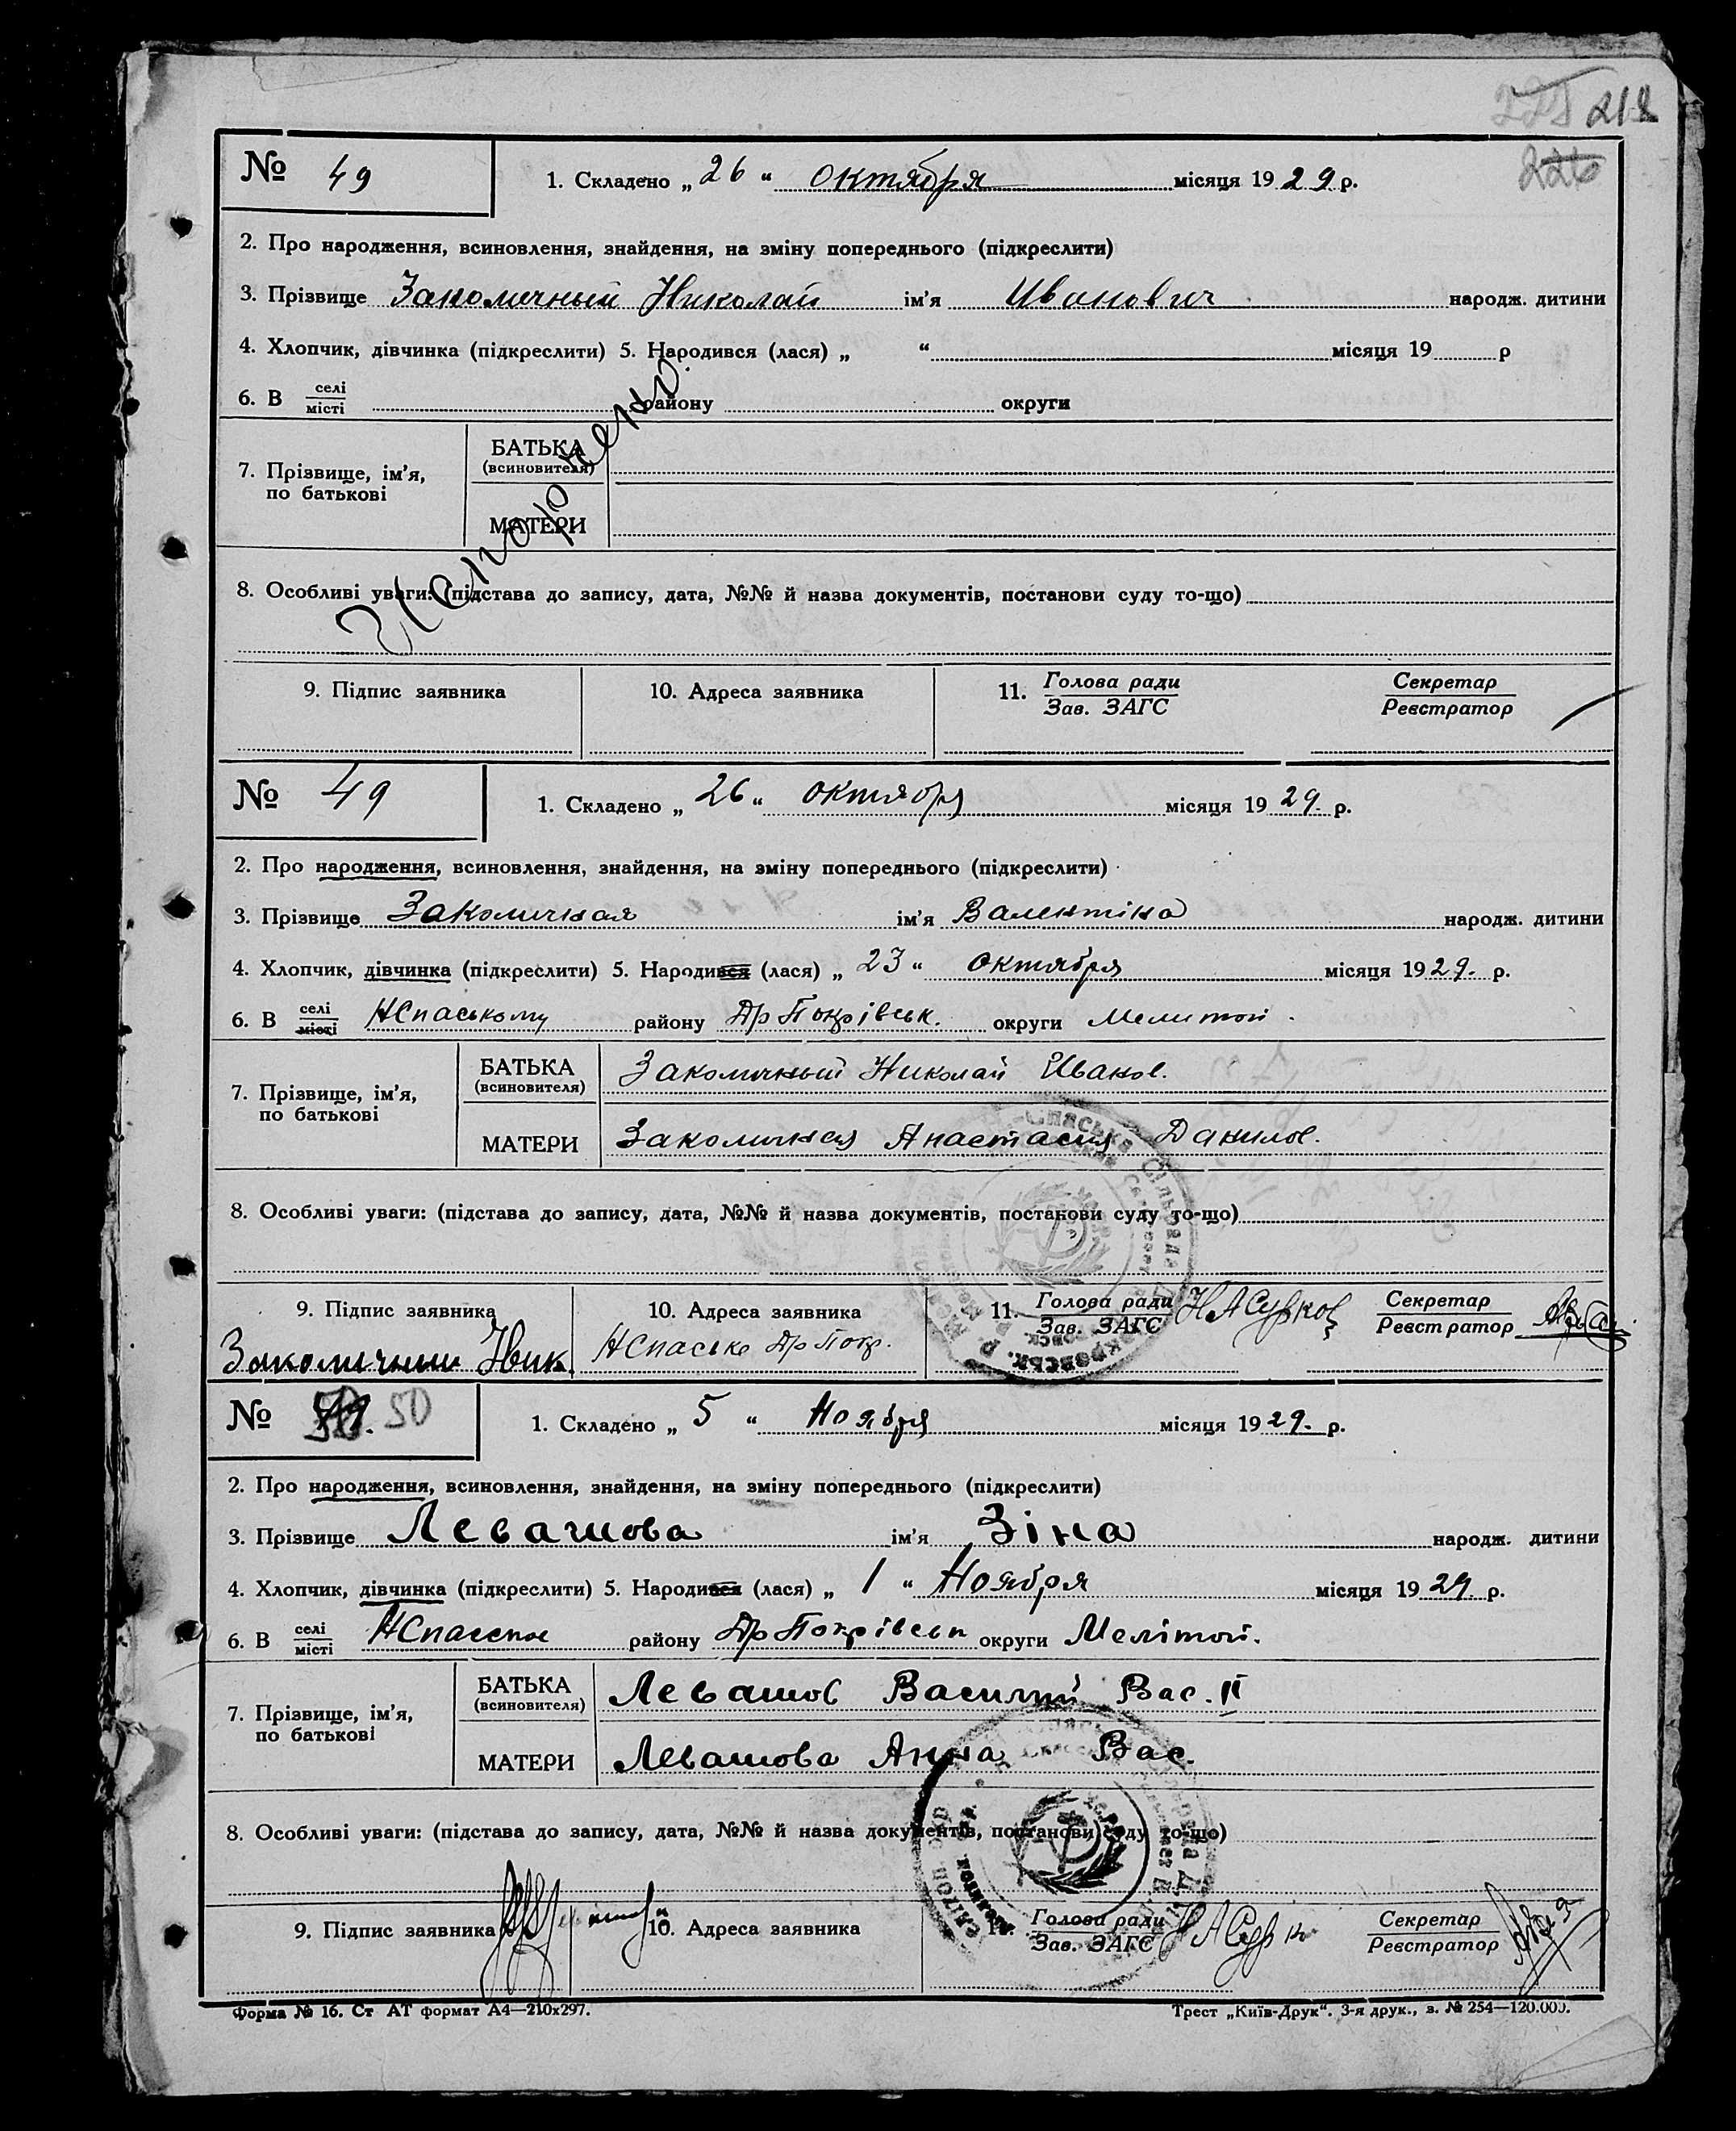 218
226
№ 49 1. Складено „ 26 “ октября місяця 1929 р.
2. Про народження, всиновлення, знайдення, на зміну попереднього (підкреслити)
3. Прізвище Закомичный Николай ім’я Иванович народж. дитини
4. Хлопчик, дівчинка (підкреслити) 5. Народився (лася) „ “ місяця 19 р
6. В селі місті району округи
7. Прізвище, ім’я, по батькові
БАТЬКА (всиновителя)
МАТЕРИ
8. Особливі уваги: (підстава до запису, дата, №№ й назва документів, постанови суду то-що)
9. Підпис заявника 10. Адреса заявника 11. Голова ради Зав. ЗАГС Секретар Реєстратор
№ 49 1. Складено „ 26 “ октября місяця 1929. р.
2. Про народження, всиновлення, знайдення, на зміну попереднього (підкреслити)
3. Прізвище Закомичная ім’я Валентіна народж. дитини
4. Хлопчик, дівчинка (підкреслити) 5. Народився (лася) „ 23 “ октября місяця 1929. р.
6. В селі місті НСпаському району Др Покрівськ. округи Мелитоп.
7. Прізвище, ім’я, по батькові
БАТЬКА (всиновителя) Закомичный Николай Иванов.
МАТЕРИ Закомичная Анастасия Данилов.
8. Особливі уваги: (підстава до запису, дата, №№ й назва документів, постанови суду то-що)
9. Підпис заявника 10. Адреса заявника 11. Голова ради Зав. ЗАГС НАСурков Секретар Реєстратор
Закомичный Ник НСпаське Др Покр.
№ 50 1. Складено „ 5 “ Ноября місяця 1929. р.
2. Про народження, всиновлення, знайдення, на зміну попереднього (підкреслити)
3. Прізвище Левашова ім’я Зіна народж. дитини
4. Хлопчик, дівчинка (підкреслити) 5. Народився (лася) „ 1 “ Ноября місяця 1929 р.
6. В селі місті НСпасское району Др Покрівськ округи Мелітоп.
7. Прізвище, ім’я, по батькові
БАТЬКА (всиновителя) Левашов Василий Вас. II
МАТЕРИ Левашова Анна Вас.
8. Особливі уваги: (підстава до запису, дата, №№ й назва документів, постанови суду то-що)
9. Підпис заявника 10. Адреса заявника 11. Голова ради Зав. ЗАГС НАСурк Секретар Реєстратор
Форма № 16. Ст АТ формат А4—210х297. Трест „Київ-Друк“. 3-я друк., з. № 254—120.000.